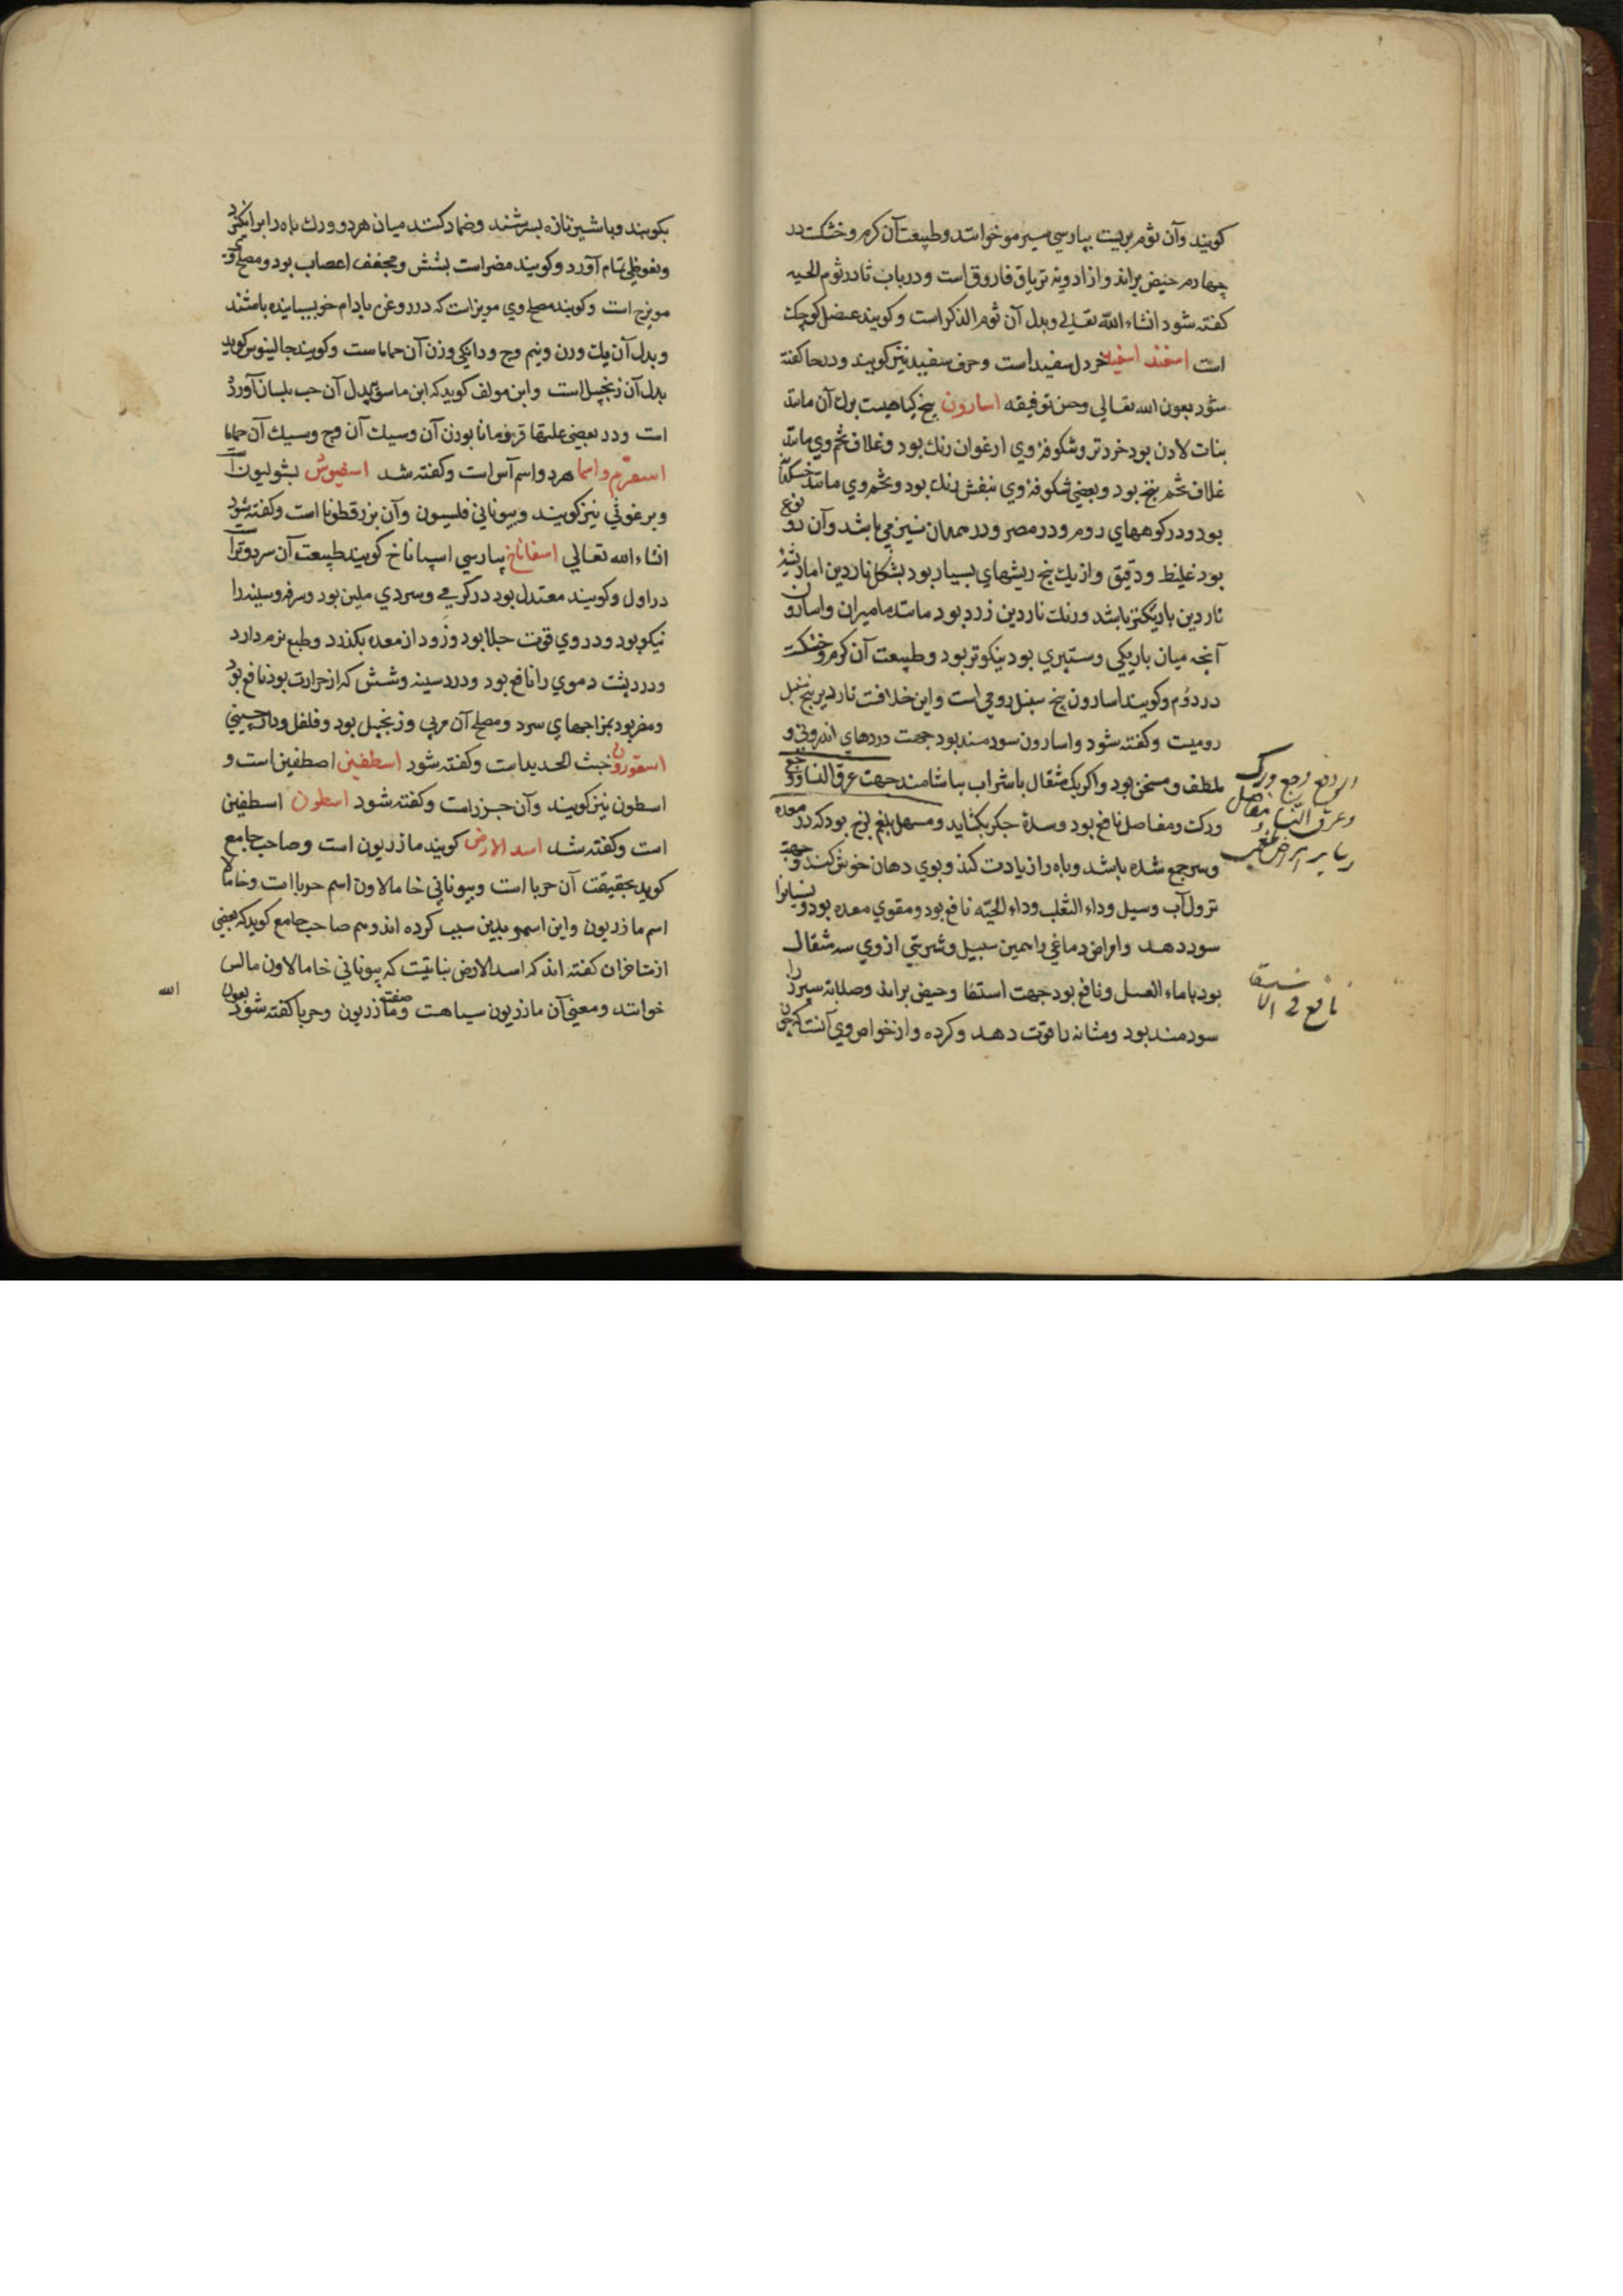 کویند وآن ثوم بریست بپارسی سیر مو خوانند وطبیعت آن کرم وخشکست در
چهارم حیض براند واز ادویهٔ تریاق فاروق است ودر باب ثا در ثوم الحیه
کفته شود انشاء الله تعالی وبدل آن ثوم الذکر است وکویند عنصل کوچک
است اسفند اسفید خردل سفید است وحرف سفید نیز کویند ودرحا کفته
شود بعون الله تعالی وحسن توفیقه اسارون بیخ کیاهیست برک آن مانند
بنات لادن بود خردتر وشکوفهٔ وی ارغوان رنک بود وغلاف تخم وی مانند
غلاف تخم بنج بود وبعضی شکوفهٔ وی بنفش رنک بود وتخم وی مانند خسکدانه
بود ودر کوههای روم ودر مصر ودر همدان نیز می باشد وآن دو نوع
بود غلیظ ودقیق واز یک بیخ ریشهای بسیار بود بشکل ناردین اما ریشهٔ
ناردین باریکتر باشد ورنک ناردین زرد بود مانند مامیران واسارون
آنچه میان باریکی وستبری بود نیکوتر بود وطبیعت آن کرم وخشکست
در دوم وکویند اسارون بیخ سنبل رومی است واین خلافست ناردین بیخ سنبل
رومیست وکفته شود واسارون سودمند بود جهت دردهای اندرونی و
ملطف ومسخن بود واکر یک مثقال با شراب بیاشامند جهت عرق النسا ووجع
ورک ومفاصل نافع بود وسدهٔ جکر بکشاید ومسهل بلغم لزج بود که در معده
وسر جمع شده باشد وباه را زیادت کند وبوی دهان خوش کند وجهت
نزول آب وسیل وداء الثعلب وداء الحیّه نافع بود ومقوی معده بود ونسیانرا
سود دهد وامراض دماغی را همین سبیل وشربتی از وی سه مثقال
بود با ماء العسل ونافع بود جهت استسقا وحیض براند وصلابهٔ سپرز را
سودمند بود ومثانه را قوت دهد وکرده واز خواص وی آنست که چون
وجع ورک
وعرق النسا مفاصل
نافع فی الاستسقا
بکوبند وبا شیر تازه بسرشند وضماد کنند میان هر دو ورک باه را برانکیزد
ونغوظی تمام آورد وکویند مضر است بشش ومجفف اعصاب بود ومصلح وی
مویزج است وکویند مصلح وی مویز است که در روغن بادام خیسانیده باشند
وبدل آن یک وزن ونیم وج ودانکی وزن آن حماماست وکویند جالینوس کوید
بدل آن زنجبیل است وابن مولف کوید که ابن ماسویه بدل آن حب بلسان آورده
است ودر بعضی علتها قردمانا بوزن آن وسیک آن وج وسیک آن حماما
اسفرم واسما هر دو اسم آس است وکفته شد اسفیوش بشولیون است
وبرغوثی نیز کویند وبیونانی فلسیون وآن بزرقطونا است وکفته شود
انشاء الله تعالی اسفاناخ بپارسی اسپاناخ کویند طبیعت آن سرد وتر است
در اول وکویند معتدل بود در کرمی وسردی ملین بود وسرفه وسینه را
نیکو بود ودر وی قوت جلا بود وزود از معده بکذرد وطبع نرم دارد
ودرد پشت دموی را نافع بود ودرد سینه وشش که از حرارت بود نافع بود
ومضر بود بمزاجهای سرد ومصلح آن مربی وزنجبیل بود وفلفل ودارچینی
اسقورون خبث الحدید است وکفته شود اسطفین اصطفین است و
اسطون نیز کویند وآن جزر است وکفته شود اسطون اسطفین
است وکفته شد اسد الارض کویند مازریون است وصاحب جامع
کوید بحقیقت آن حربا است وبیونانی خامالاون اسم حربا است وخامالا
اسم مازریون واین اسم بدین سبب کرده اند وهم صاحب جامع کوید که بعضی
از متاخران کفته اند که اسد الارض نباتیست که بیونانی خامالاون مالس
خوانند ومعنی آن مازریون سیاهست وصفت مازریون وحربا کفته شود بعون
الله